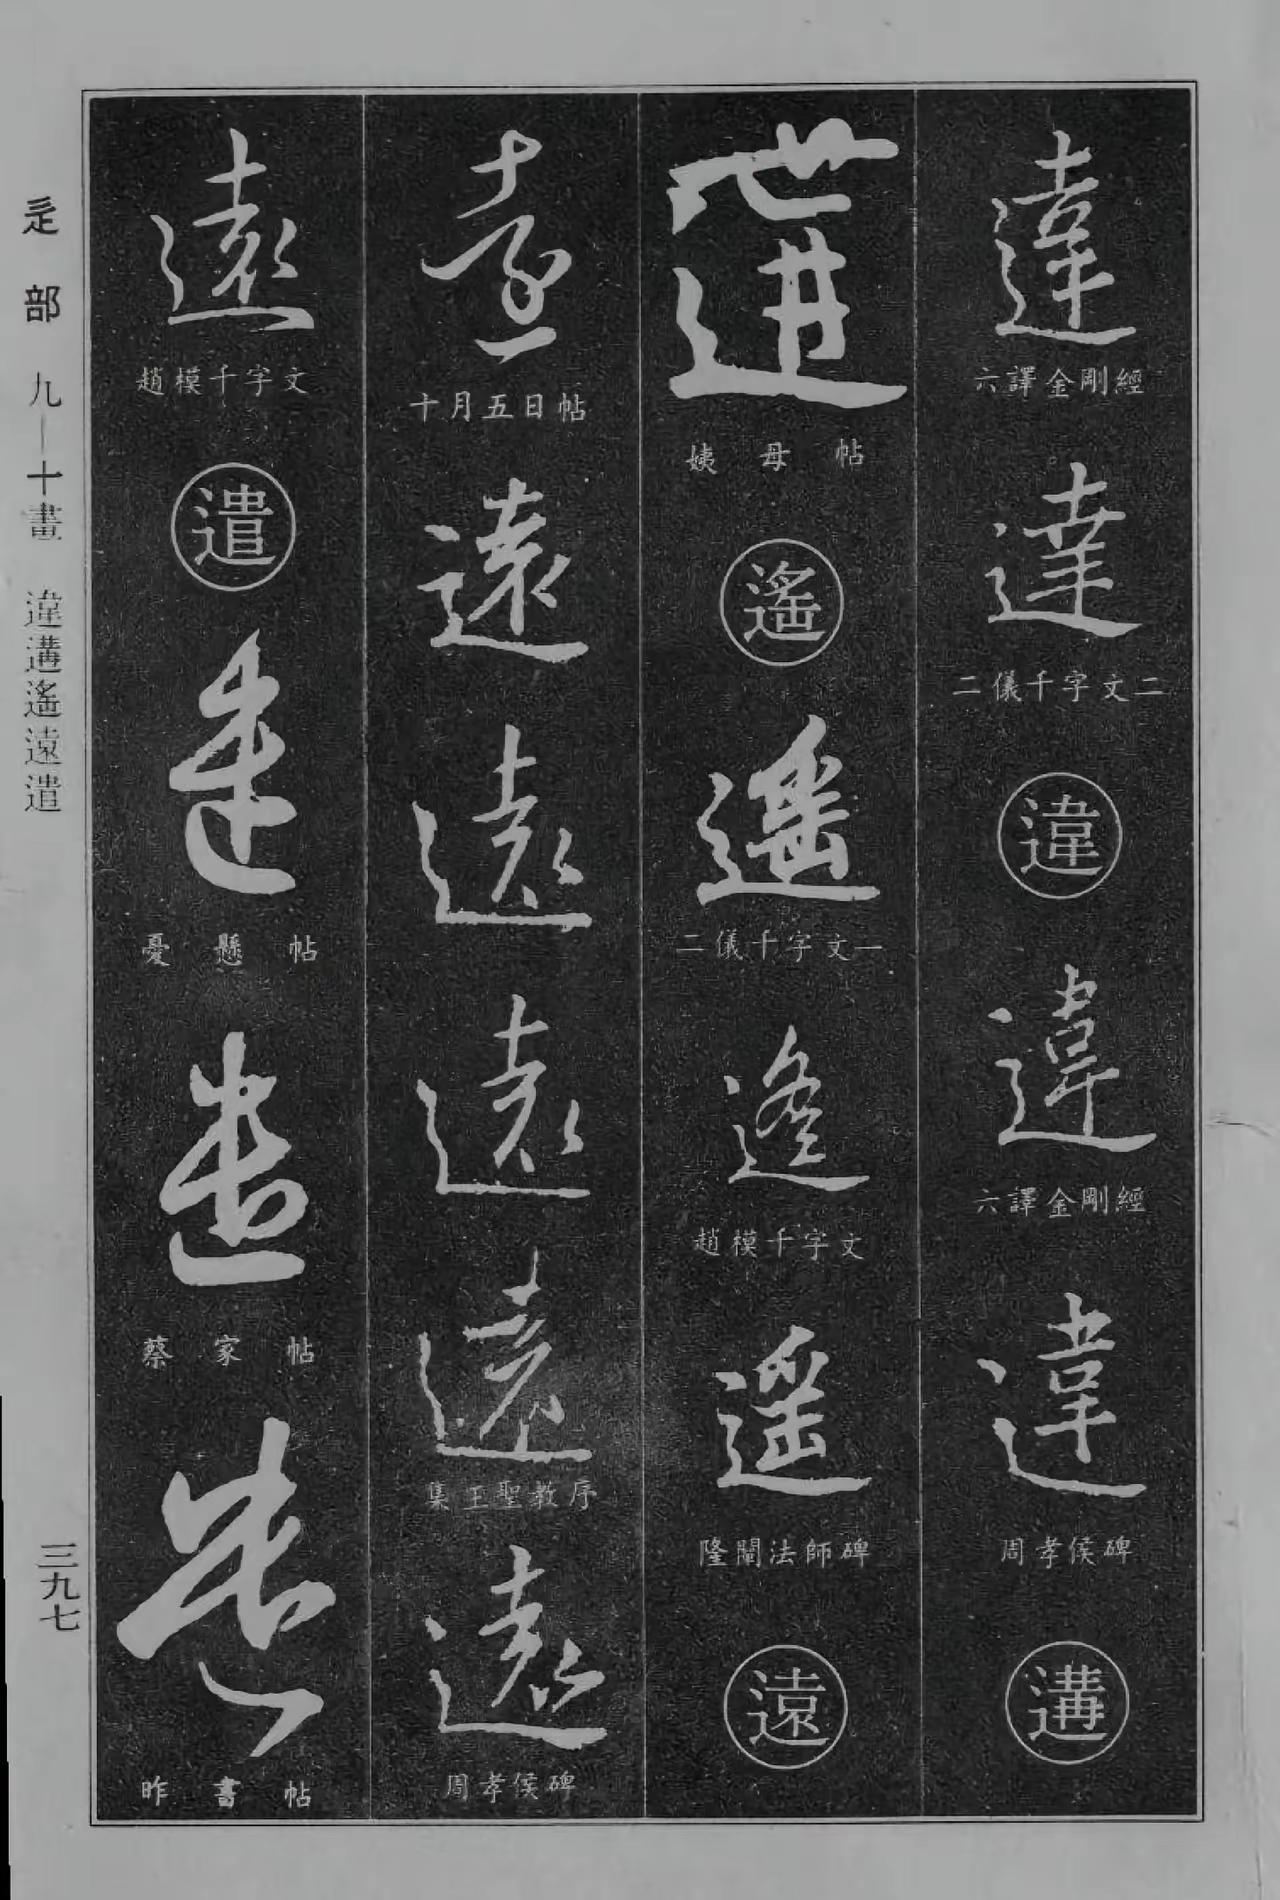 達
六譯金剛經
達
二儀千字文二
違
違
六譯金剛經
違
周孝侯碑
遘
遘
姨母帖
遙
遙
二儀千字文一
遙
趙模千字文
遙
隆闡法師碑
遠
遠
十月五日帖
遠
遠
遠
遠
集王聖教序
遠
周孝侯碑
遠
趙模千字文
遣
遣
憂懸帖
遣
蔡家帖
遣
昨書帖
辵部 九—十畫 違遘遙遠遣
三九七